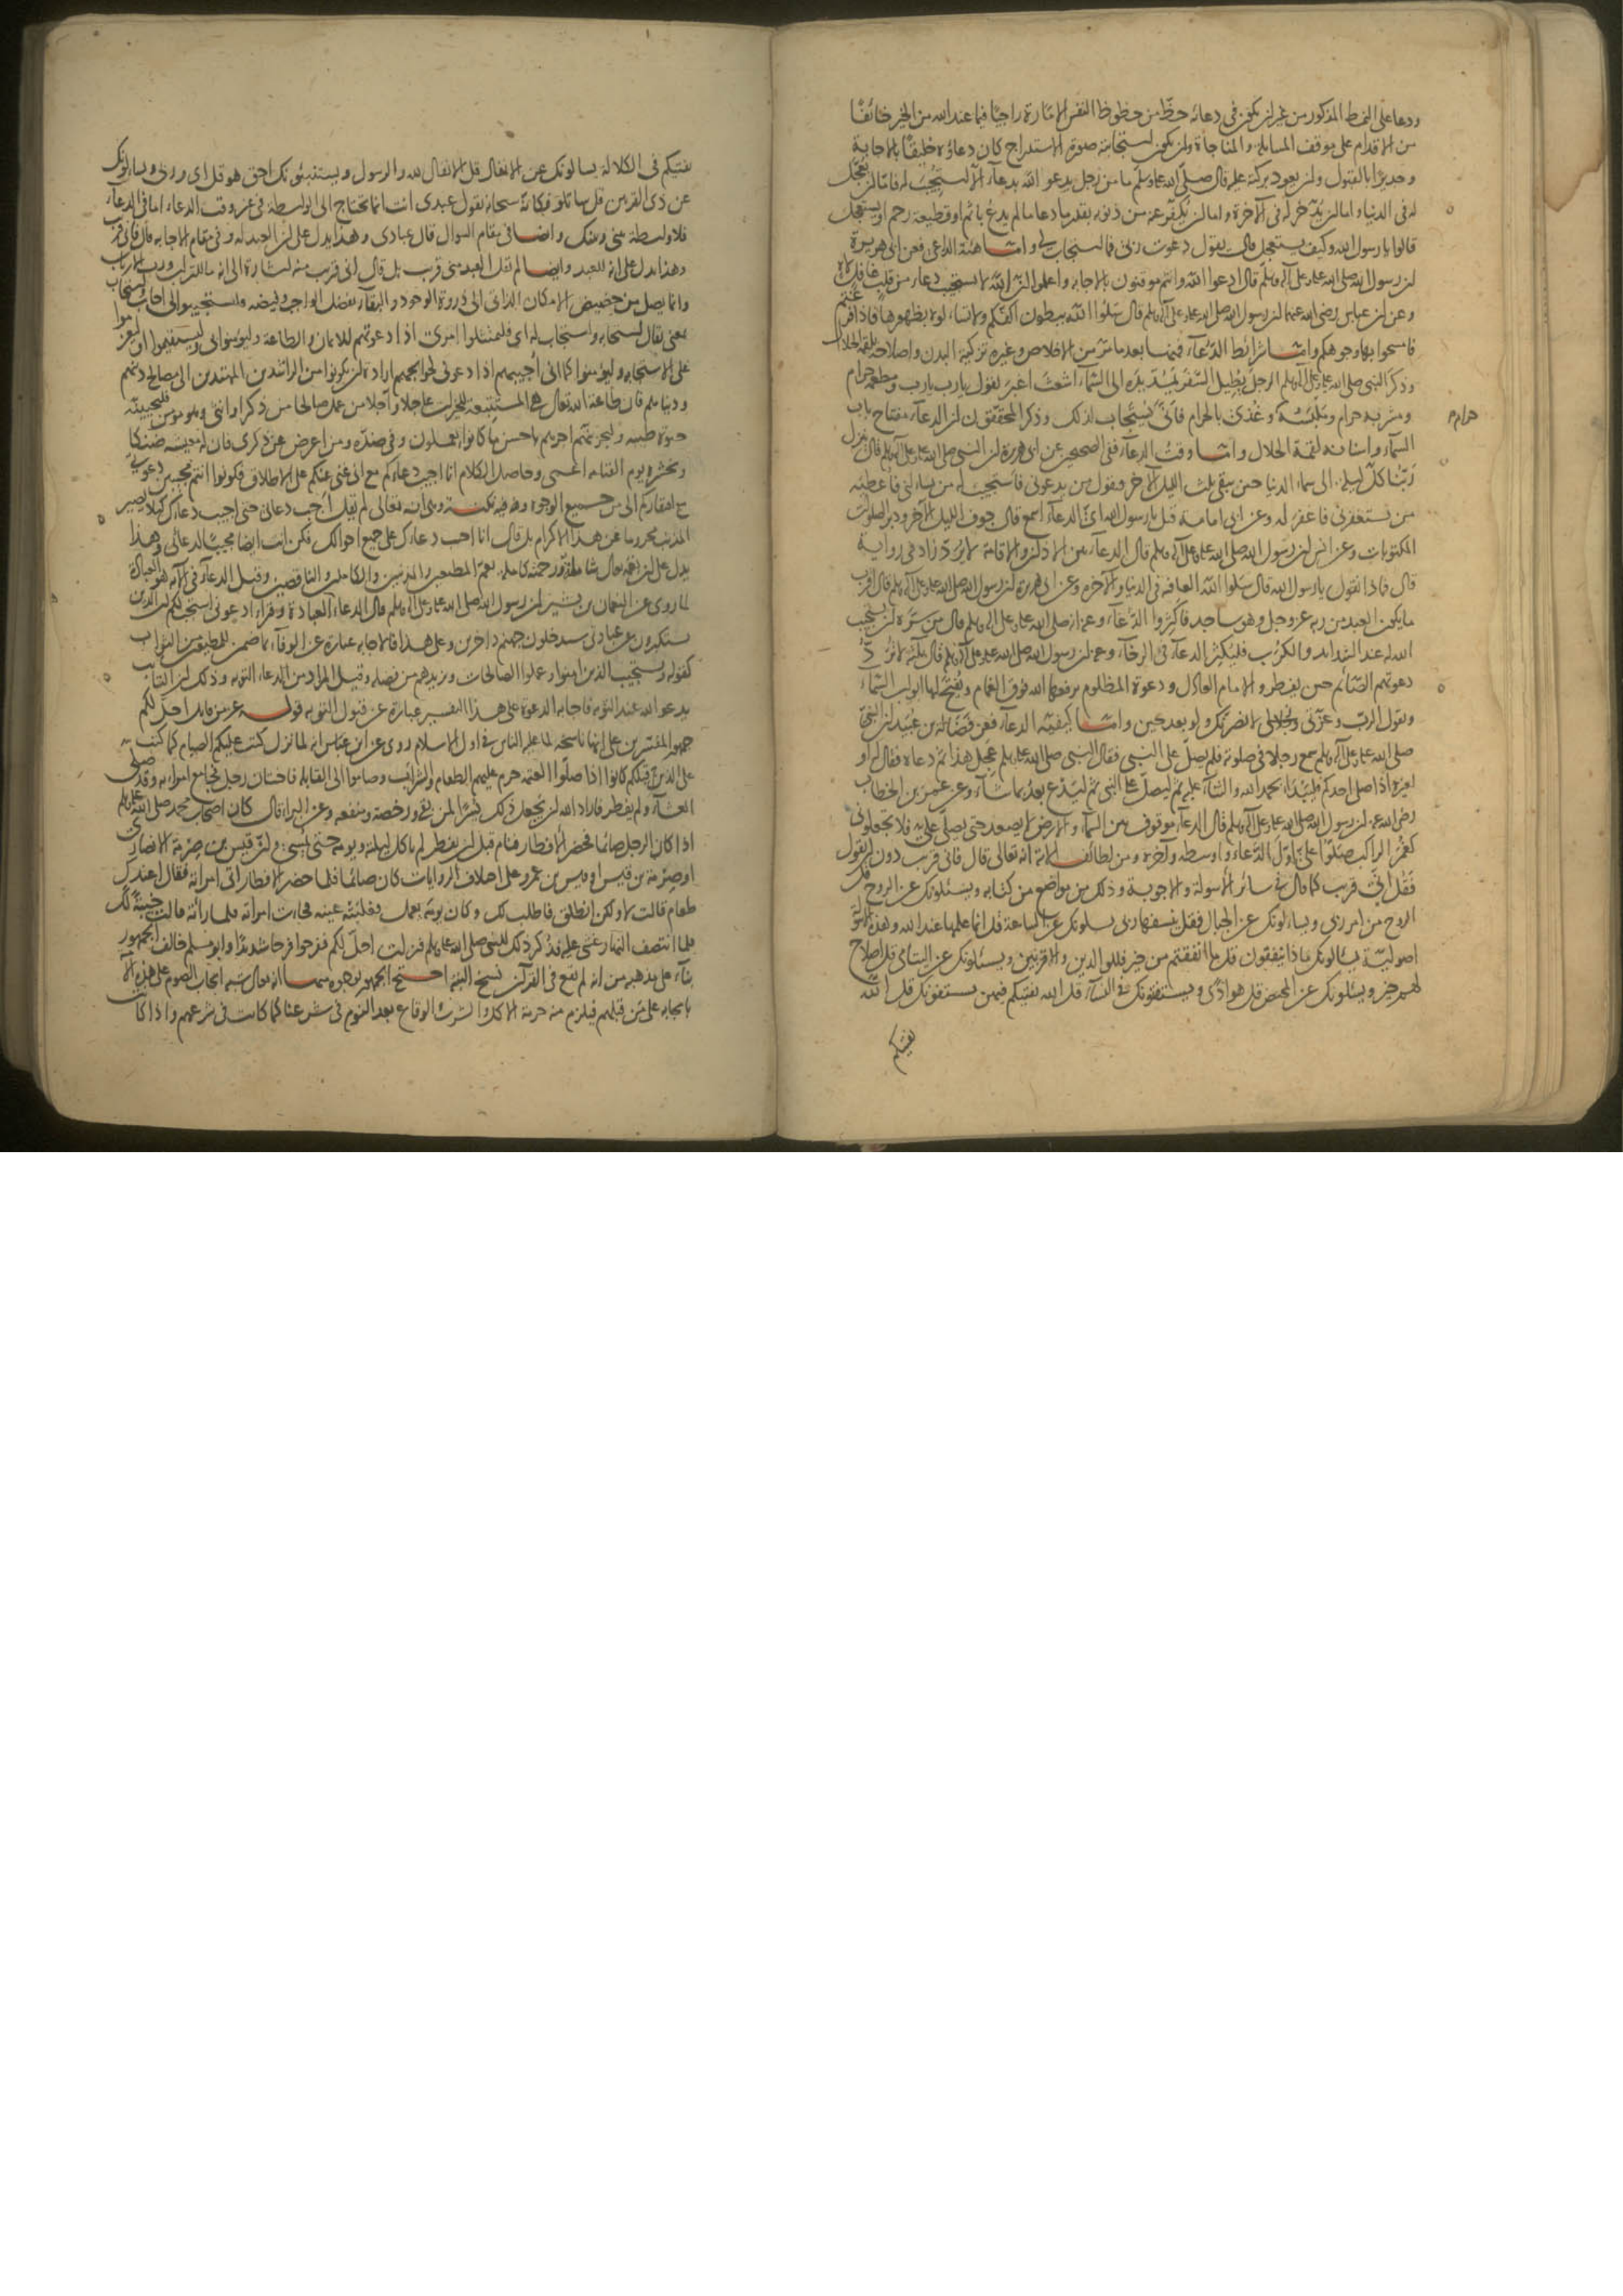 ودعا على النمط المذكور من غير ان يكون في دعائه حظ من حظوظ النفس الامارة راجيا فيما عند الله من الخير خائفا
من الاقدام على موقف المسايلة والمناجاة وان يكون استجابته صورة الاستدراج كان دعاؤه خليقا بالاجابة
وجديرا بالقبول وان يعود بركة عليه قال صلى الله عليه وسلم ما من رجل يدعو الله بدعاء الا استجيب له فاما ان يعجل
له في الدنيا واما ان يدخر له في الآخرة واما ان يكفر عنه من ذنوبه بقدر ما دعا ما لم يدع باثم او قطيعة رحم او يستعجل
قالوا يا رسول الله وكيف يستعجل قال يقول دعوت ربي فما استجاب لي واما هيئة الداعي فعن ابي هريرة
ان رسول الله صلى الله عليه وعلى آله وسلم قال ادعوا الله وانتم موقنون بالاجابة واعلموا ان الله لا يستجيب دعاء من قلب غافل لاه
وعن ابن عباس رضي الله عنهما ان رسول الله صلى الله عليه وعلى آله وسلم قال سلوا الله ببطون اكفكم ولا تسألوه بظهورها فاذا فرغتم
فامسحوا بها وجوهكم واما شرائط الدعاء فمنها بعد ما مر من الاخلاص وغيره تزكية البدن واصلاحه بلقمة الحلال
وذكر النبي صلى الله عليه وعلى آله وسلم الرجل يطيل السفر يمد يده الى السماء اشعث اغبر يقول يا رب يا رب ومطعمه حرام
ومشربه حرام وملبسه وغذي بالحرام فانى يستجاب لذلك وذكر المحققون ان الدعاء مفتاح باب
حرام
السماء واسنانه لقمة الحلال واما وقت الدعاء ففي الصحيحين عن ابي هريرة ان النبي صلى الله عليه وعلى آله وسلم قال ينزل
ربنا كل ليلة الى سماء الدنيا حين يبقى ثلث الليل الآخر فيقول من يدعوني فاستجيب له من يسألني فاعطيه
من يستغفرني فاغفر له وعن ابي امامة قيل يا رسول الله اي الدعاء اسمع قال جوف الليل الآخر ودبر الصلوات
المكتوبات وعن انس ان رسول الله صلى الله عليه وعلى آله وسلم قال الدعاء بين الاذان والاقامة لا يرد زاد في رواية
قال فماذا نقول يا رسول الله قال سلوا الله العافية في الدنيا والآخرة وعن ابي هريرة ان رسول الله صلى الله عليه وعلى آله وسلم قال اقرب
ما يكون العبد من ربه عز وجل وهو ساجد فاكثروا الدعاء وعنه انه صلى الله عليه وعلى آله وسلم قال من سره ان يستجيب
الله له عند الشدائد والكرب فليكثر الدعاء في الرخاء وعنه ان رسول الله صلى الله عليه وعلى آله وسلم قال ثلثة لا ترد
دعوتهم الصائم حين يفطر والامام العادل ودعوة المظلوم يرفعها الله فوق الغمام ويفتح لها ابواب السماء
ويقول الرب وعزتي وجلالي لانصرنك ولو بعد حين واما كيفية الدعاء فعن فضالة بن عبيد ان النبي
صلى الله عليه وعلى آله وسلم سمع رجلا في صلوته فلم يصل على النبي فقال النبي صلى الله عليه وسلم عجل هذا ثم دعاه فقال له او
لغيره اذا صلى احدكم فليبدا بحمد الله والثناء عليه ثم ليصل على النبي ثم ليدع بعد بما شاء وعن عمر بن الخطاب
رضي الله عنه ان رسول الله صلى الله عليه وعلى آله وسلم قال الدعاء موقوف بين السماء والارض لا يصعد حتى يصلى علي فلا تجعلوني
كغمر الراكب صلوا علي اول الدعاء واوسطه وآخره ومن لطائف الآية انه تعالى قال فاني قريب دون ان يقول
فقل اني قريب كما قال في سائر الاسولة والاجوبة وذلك من مواضع من كتابه ويسئلونك عن الروح قل
الروح من امر ربي ويسألونك عن الجبال فقل ينسفها ربي يسئلونك عن الساعة قل انما علمها عند الله وهذه
اصولية يسألونك ماذا ينفقون قل ما انفقتم من خير فللوالدين والاقربين ويسئلونك عن اليتامى قل اصلاح
لهم خير ويسئلونك عن المحيض قل هو اذى ويستفتونك في النساء قل الله يفتيكم فيهن يستفتونك قل الله
يفتيكم
يفتيكم في الكلالة يسألونك عن الانفال قل الانفال لله والرسول ويستنبئونك احق هو قل اي وربي ويسألونك
عن ذي القرنين قل ساتلو فكانه سبحانه يقول عبدي انت انما تحتاج الى الواسطة في غير وقت الدعاء اما في الدعاء
فلا واسطة بيني وبينك وايضا في مقام السوال قال عبادي وهذا يدل على ان العبد له وفي مقام الاجابة قال فاني قريب
وهذا يدل على انه للعبد وايضا لم يقل العبد مني قريب بل قال اني قريب منه اشارة الى انه ما للتراب ورب الارباب
وانما يصل من حضيض الامكان الذاتي الى ذروة الوجود والبقاء بفضل الواجب وفيضه فليستجيبوا لي اجاب واستجاب
بمعنى يقال استجابه واستجاب له اي فليمتثلوا امري اذا دعوتهم للايمان والطاعة وليؤمنوا بي وليستقيموا
على الاستجابة وليؤمنوا كما اني اجيبهم اذا دعوني لحوائجهم ارادة ان يكونوا من الراشدين المهتدين الى مصالح دينهم
ودنياهم فان طاعة الله تعالى هي المستتبعة للخيرات عاجلا وآجلا من عمل صالحا من ذكر او انثى وهو مؤمن فلنحيينه
حيوة طيبة ولنجزينهم اجرهم باحسن ما كانوا يعملون وفي ضده ومن اعرض عن ذكري فان له معيشة ضنكا
ونحشره يوم القيامة اعمى وحاصل الكلام انا اجيب دعاءكم مع اني غني عنكم على الاطلاق فكونوا انتم مجيبين دعوتي
مع افتقاركم الي من جميع الوجوه وفيه نكتة وهي انه تعالى لم يقل اجب دعائي حتى اجيب دعاءك لئلا يصير
المذنب محروما عن هذا الاكرام بل قال انا اجيب دعاءك على جميع احوالك فكن انت ايضا مجيبا لدعائي وهذا
يدل على ان نعمه تعالى شاملة ورحمته كاملة تعم المطيعين والمذنبين والكاملين والناقصين وقيل الدعاء في الآية هو العبادة
لما روي عن النعمان بن بشير ان رسول الله صلى الله عليه وعلى آله وسلم قال الدعاء العبادة وقرأ ادعوني استجب لكم ان الذين
يستكبرون عن عبادتي سيدخلون جهنم داخرين وعلى هذا فالاجابة عبارة عن الوفاء بما ضمن للمطيعين من الثواب
كقوله ويستجيب الذين امنوا وعملوا الصالحات ويزيدهم من فضله وقيل المراد من الدعاء التوبة وذلك ان التائب
يدعو الله عند التوبة فاجابة الدعوة على هذا التفسير عبارة عن قبول التوبة قوله عز من قائل احل لكم
جمهور المفسرين على انها ناسخة لما عليه الناس في اول الاسلام روي عن ابن عباس انه لما نزل كتب عليكم الصيام كما كتب
على الذين قبلكم كانوا اذا صلوا العتمة حرم عليهم الطعام والشراب وصاموا الى القابلة فاختان رجل فجامع امرأته وقد صلى
العشاء ولم يفطر فاراد الله ان يجعل ذلك يسرا لمن بقي ورخصة ومنفعة وعن البراء قال كان اصحاب محمد صلى الله عليه وسلم
اذا كان الرجل صائما فحضر الافطار فنام قبل ان يفطر لم ياكل ليلته ويومه حتى يمسي وان قيس بن صرمة الانصاري
او صرمة بن قيس او قيس بن عمرو على اختلاف الروايات كان صائما فلما حضر الافطار اتى امرأته فقال اعندك
طعام قالت لا ولكن انطلق فاطلب لك وكان يومه يعمل فغلبته عينه فجاءت امرأته فلما رأته قالت خيبة لك
فلما انتصف النهار غشي عليه فذكر ذلك للنبي صلى الله عليه وسلم فنزلت احل لكم ففرحوا فرحا شديدا وابو مسلم خالف الجمهور
بناء على مذهبه من انه لم يقع في القرآن نسخ البتة احتج الجمهور بوجوه منها انه تعالى شبه ايجاب الصوم على هذه الامة
بايجابه على من قبلهم فيلزم منه حرمة الاكل والشرب والوقاع بعد النوم في شرعنا كما كانت في شرعهم واذا كانت